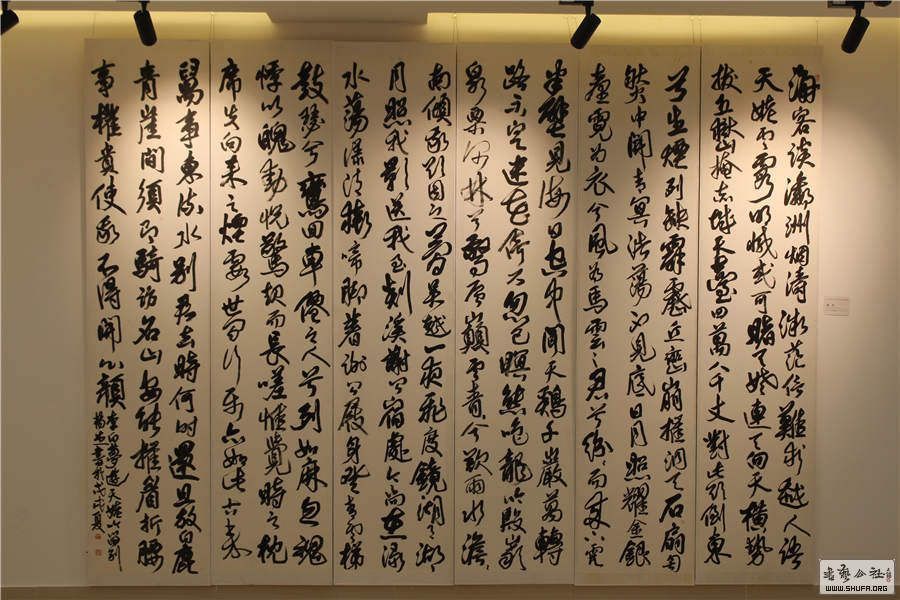 海客談瀛洲烟濤微茫信難求越人語
天姥雲霞明滅或可睹天姥連天向天橫勢
拔五嶽掩赤城天臺四萬八千丈對此欲倒東
兮生煙列缺霹靂丘巒崩摧洞天石扇訇
然中開青冥浩蕩不見底日月照耀金銀
臺霓為衣兮風為馬雲之君兮紛紛而來下虎
半壁見海日空中聞天鷄千巖萬轉
路不定迷花倚石忽已暝熊咆龍吟殷巖
泉栗深林兮驚層巔雲青青兮欲雨水澹澹
南傾我欲因之夢吳越一夜飛度鏡湖月湖
月照我影送我至剡溪謝公宿處今尚在淥
水蕩漾清猿啼脚著謝公屐身登青雲梯
鼓瑟兮鸞回車僊之人兮列如麻忽魂
悸以魄動怳驚起而長嗟惟覺時之枕
席失向來之煙霞世間行樂亦如此古來
萬事東流水別君去時何時還且放白鹿
青崖間須即騎訪名山安能摧眉折腰
事權貴使我不得開心顏
李白夢遊天姥吟留別
書於戊戌夏
WWW.SHUFA.ORG